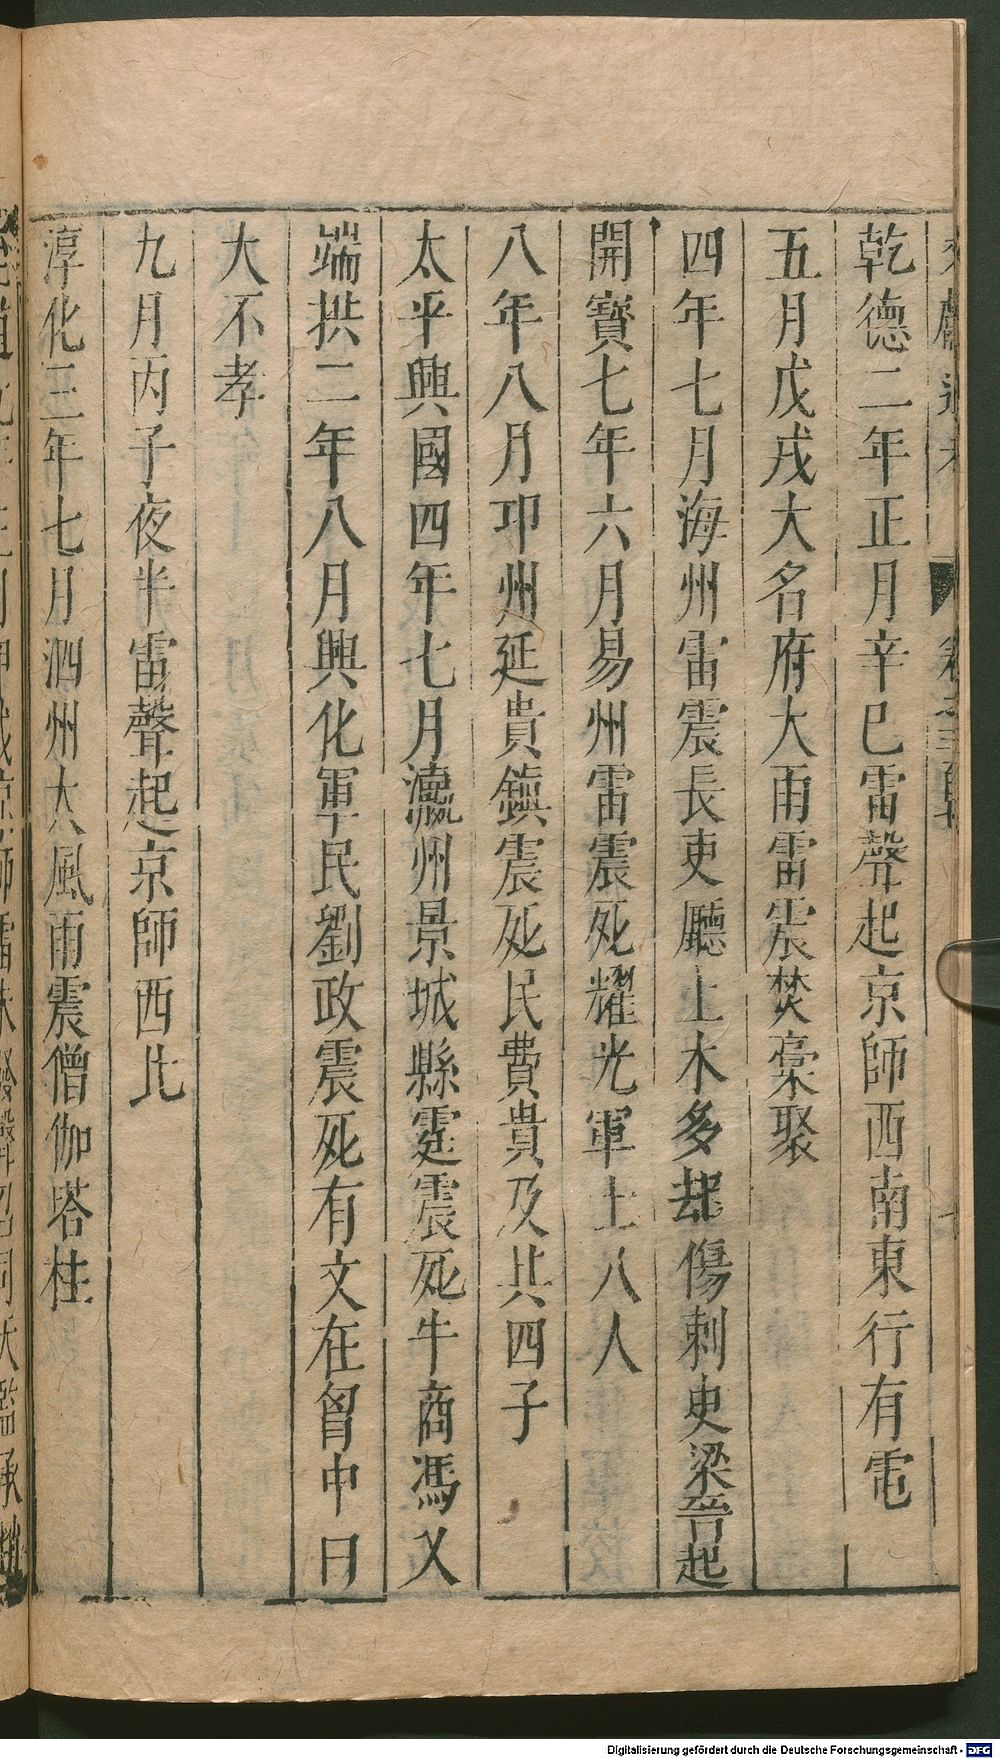 乾德二年正月辛巳雷聲起京師西南東行有電
五月戊戌大名府大雨雷震焚藁聚
四年七月海州雷震長吏廳土木多起傷刺史梁晉起
開寶七年六月易州雷震死耀光軍士八人
八年八月邛州延貴鎮震死民費貴及其四子
太平興國四年七月瀛州景城縣霆震死牛商馮乂
端拱二年八月興化軍民劉政震死有文在胷中曰
大不孝
九月丙子夜半雷聲起京師西北
淳化三年七月泗州大風雨震僧伽塔柱
Digitalisierung gefördert durch die Deutsche Forschungsgemeinschaft - DFG